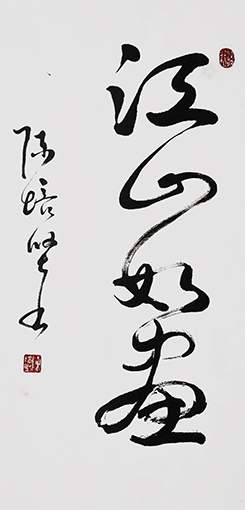 江山如画
陈培坚书